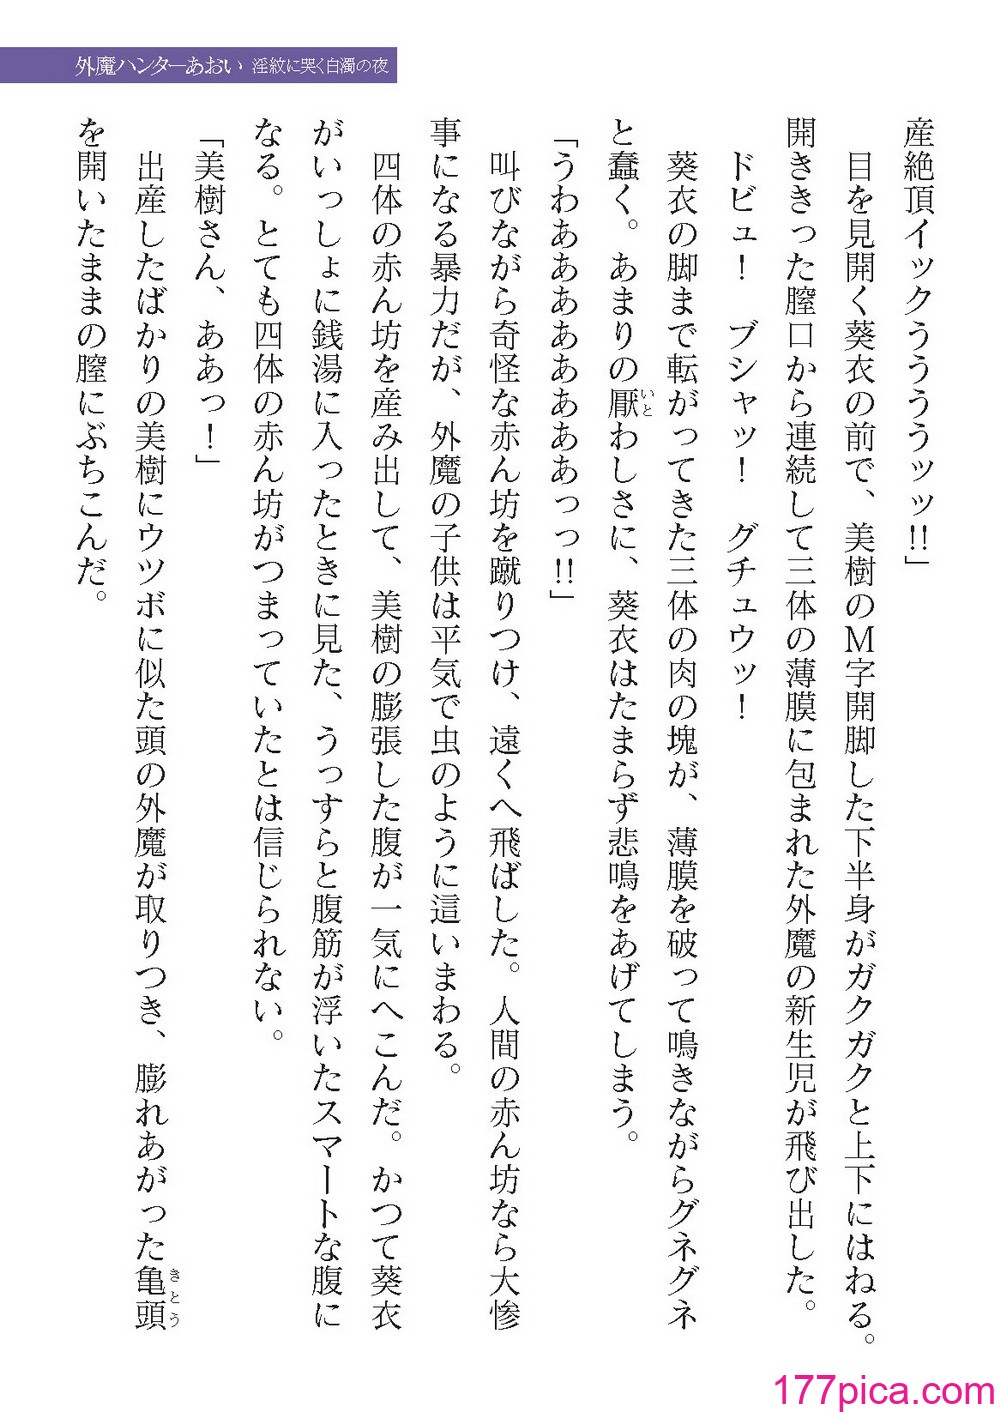 外魔ハンターあおい 淫紋に哭く白濁の夜
産絶頂イックううううッッ!!」
目を見開く葵衣の前で、美樹のM字開脚した下半身がガクガクと上下にはねる。
開ききった膣口から連続して三体の薄膜に包まれた外魔の新生児が飛び出した。
ドビュ! ブシャッ! グチュウッ!
葵衣の脚まで転がってきた三体の肉の塊が、薄膜を破って鳴きながらグネグネ
と蠢く。あまりの厭いとわしさに、葵衣はたまらず悲鳴をあげてしまう。
「うわああああああああっっ!!」
叫びながら奇怪な赤ん坊を蹴りつけ、遠くへ飛ばした。人間の赤ん坊なら大惨
事になる暴力だが、外魔の子供は平気で虫のように這いまわる。
四体の赤ん坊を産み出して、美樹の膨張した腹が一気にへこんだ。かつて葵衣
がいっしょに銭湯に入ったときに見た、うっすらと腹筋が浮いたスマートな腹に
なる。とても四体の赤ん坊がつまっていたとは信じられない。
「美樹さん、ああっ!」
出産したばかりの美樹にウツボに似た頭の外魔が取りつき、膨れあがった亀頭きとう
を開いたままの膣にぶちこんだ。
177pica.com